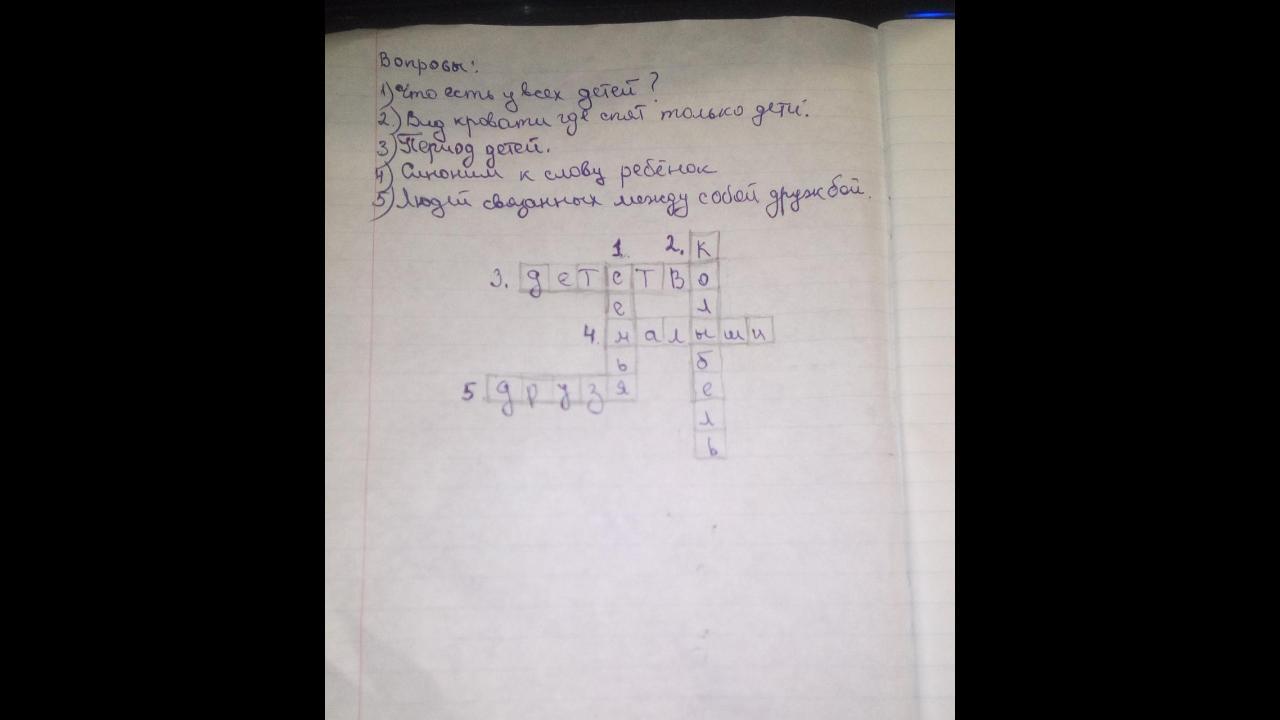 Вопросы:
1) Что есть у всех детей?
2) Вид кровати где спят только дети.
3) Период детей.
4) Синоним к слову ребёнок
5) Людей связанных между собой дружбой.
1. 2. К
3. д е т с т в о
е л
4. м а л ы ш и
ь б
5 д р у з я е
л
ь